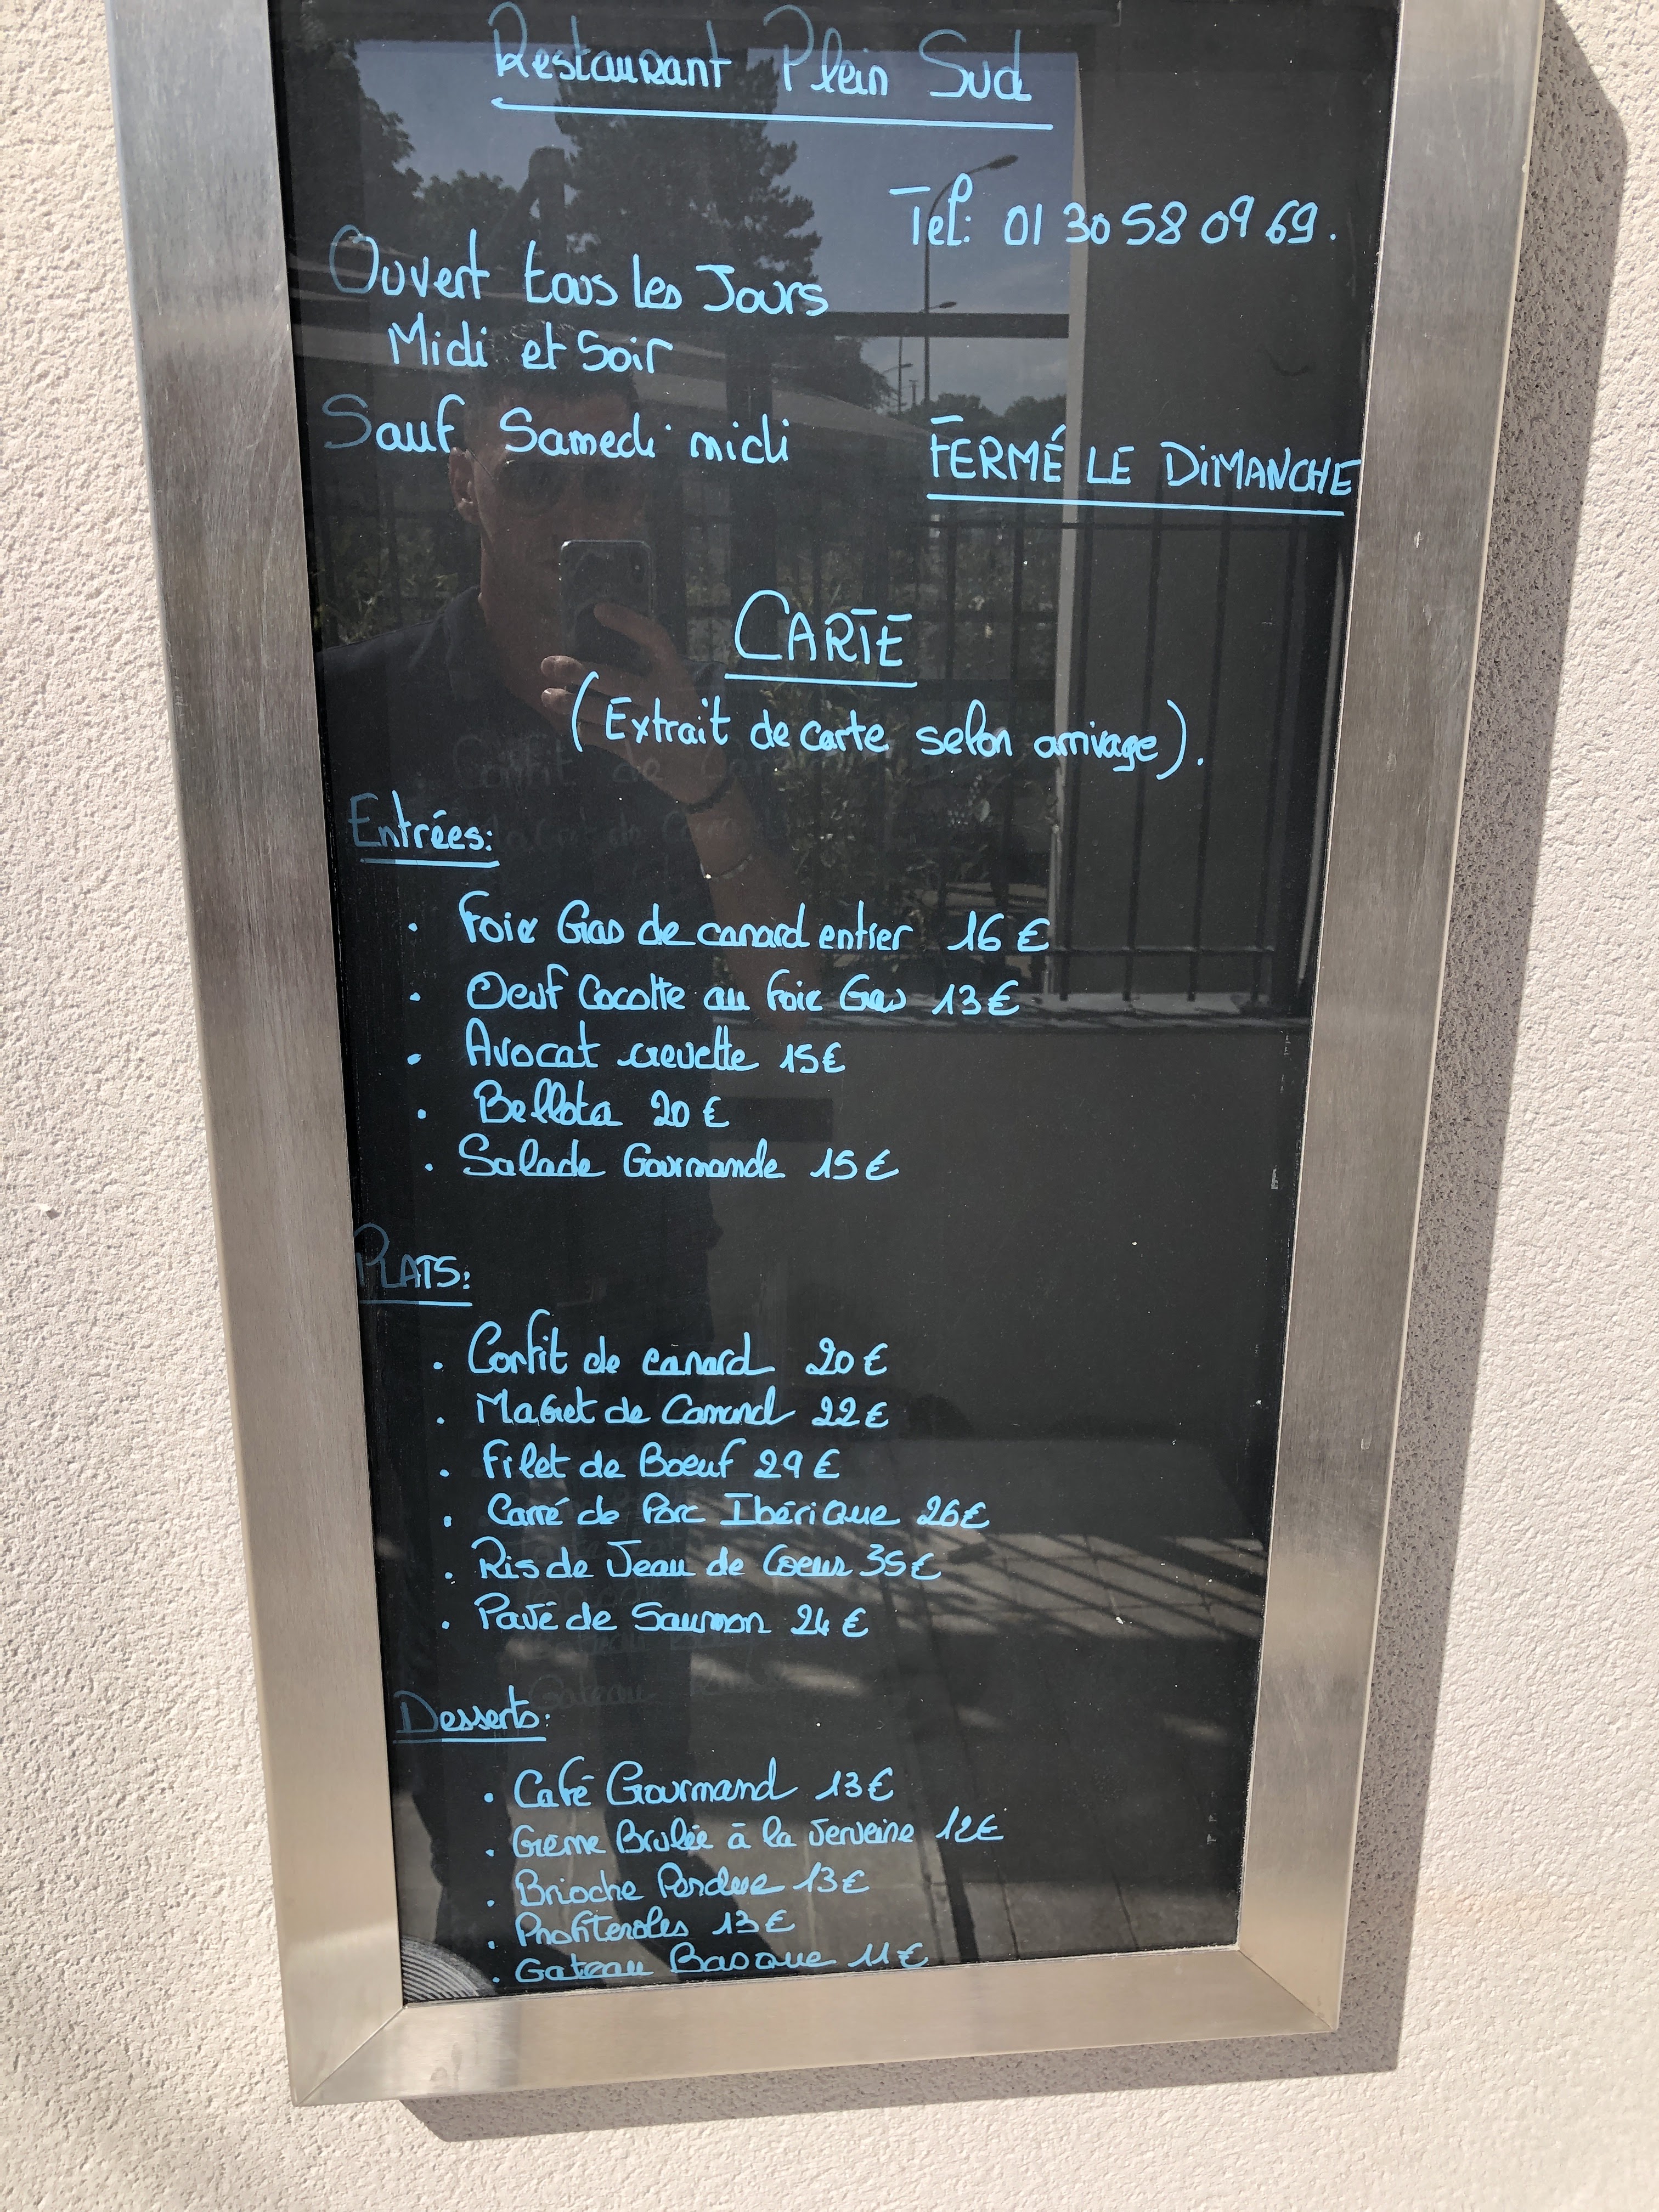 Restaurant Plein Sud
Tel: 01 30 58 09 69.
Ouvert tous les Jours
Midi et Soir
Sauf Samedi midi
FERMÉ LE DIMANCHE
CARTE
(Extrait de carte selon arrivage).
Entrées:
. Foie Gras de canard entier 16 €
. Oeuf Cocotte au Foie Gras 13 €
. Avocat crevette 15 €
. Bellota 20 €
. Salade Gourmande 15 €
PLATS:
. Confit de canard 20 €
. Magret de Canard 22 €
. Filet de Boeuf 29 €
. Carré de Porc Ibérique 26 €
. Ris de Veau de Coeur 35 €
. Pavé de Saumon 24 €
Desserts:
. Café Gourmand 13 €
. Crème Brulée à la Verveine 12 €
. Brioche Perdue 13 €
. Profiteroles 13 €
. Gateau Basque 11 €